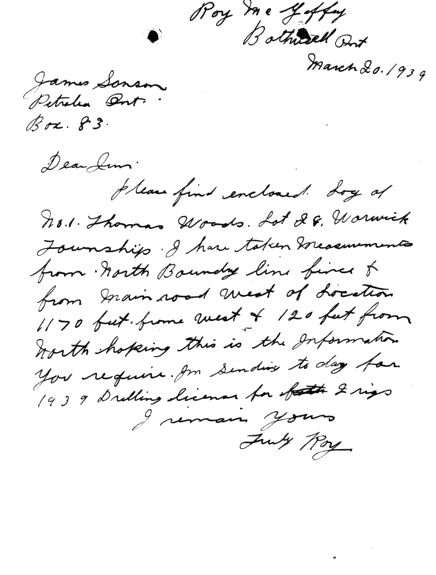 Roy Mc Gaffey
Bothwell Ont
March 20. 1939
James Sonson
Petrolea Ont.
Box. 83.
Dear Jim.
Please find enclosed. Log of
No. 1. Thomas Woods. Lot 28. Warwick
Township. I have taken Measurments
from North Boundy line fince &
from main road West of Location
1170 feet. frome West & 120 feet from
North hoping this is the Information
You require. Im Sending to day for
1939 Drilling license for both 2 rigs
I remain Yours
Truly Roy